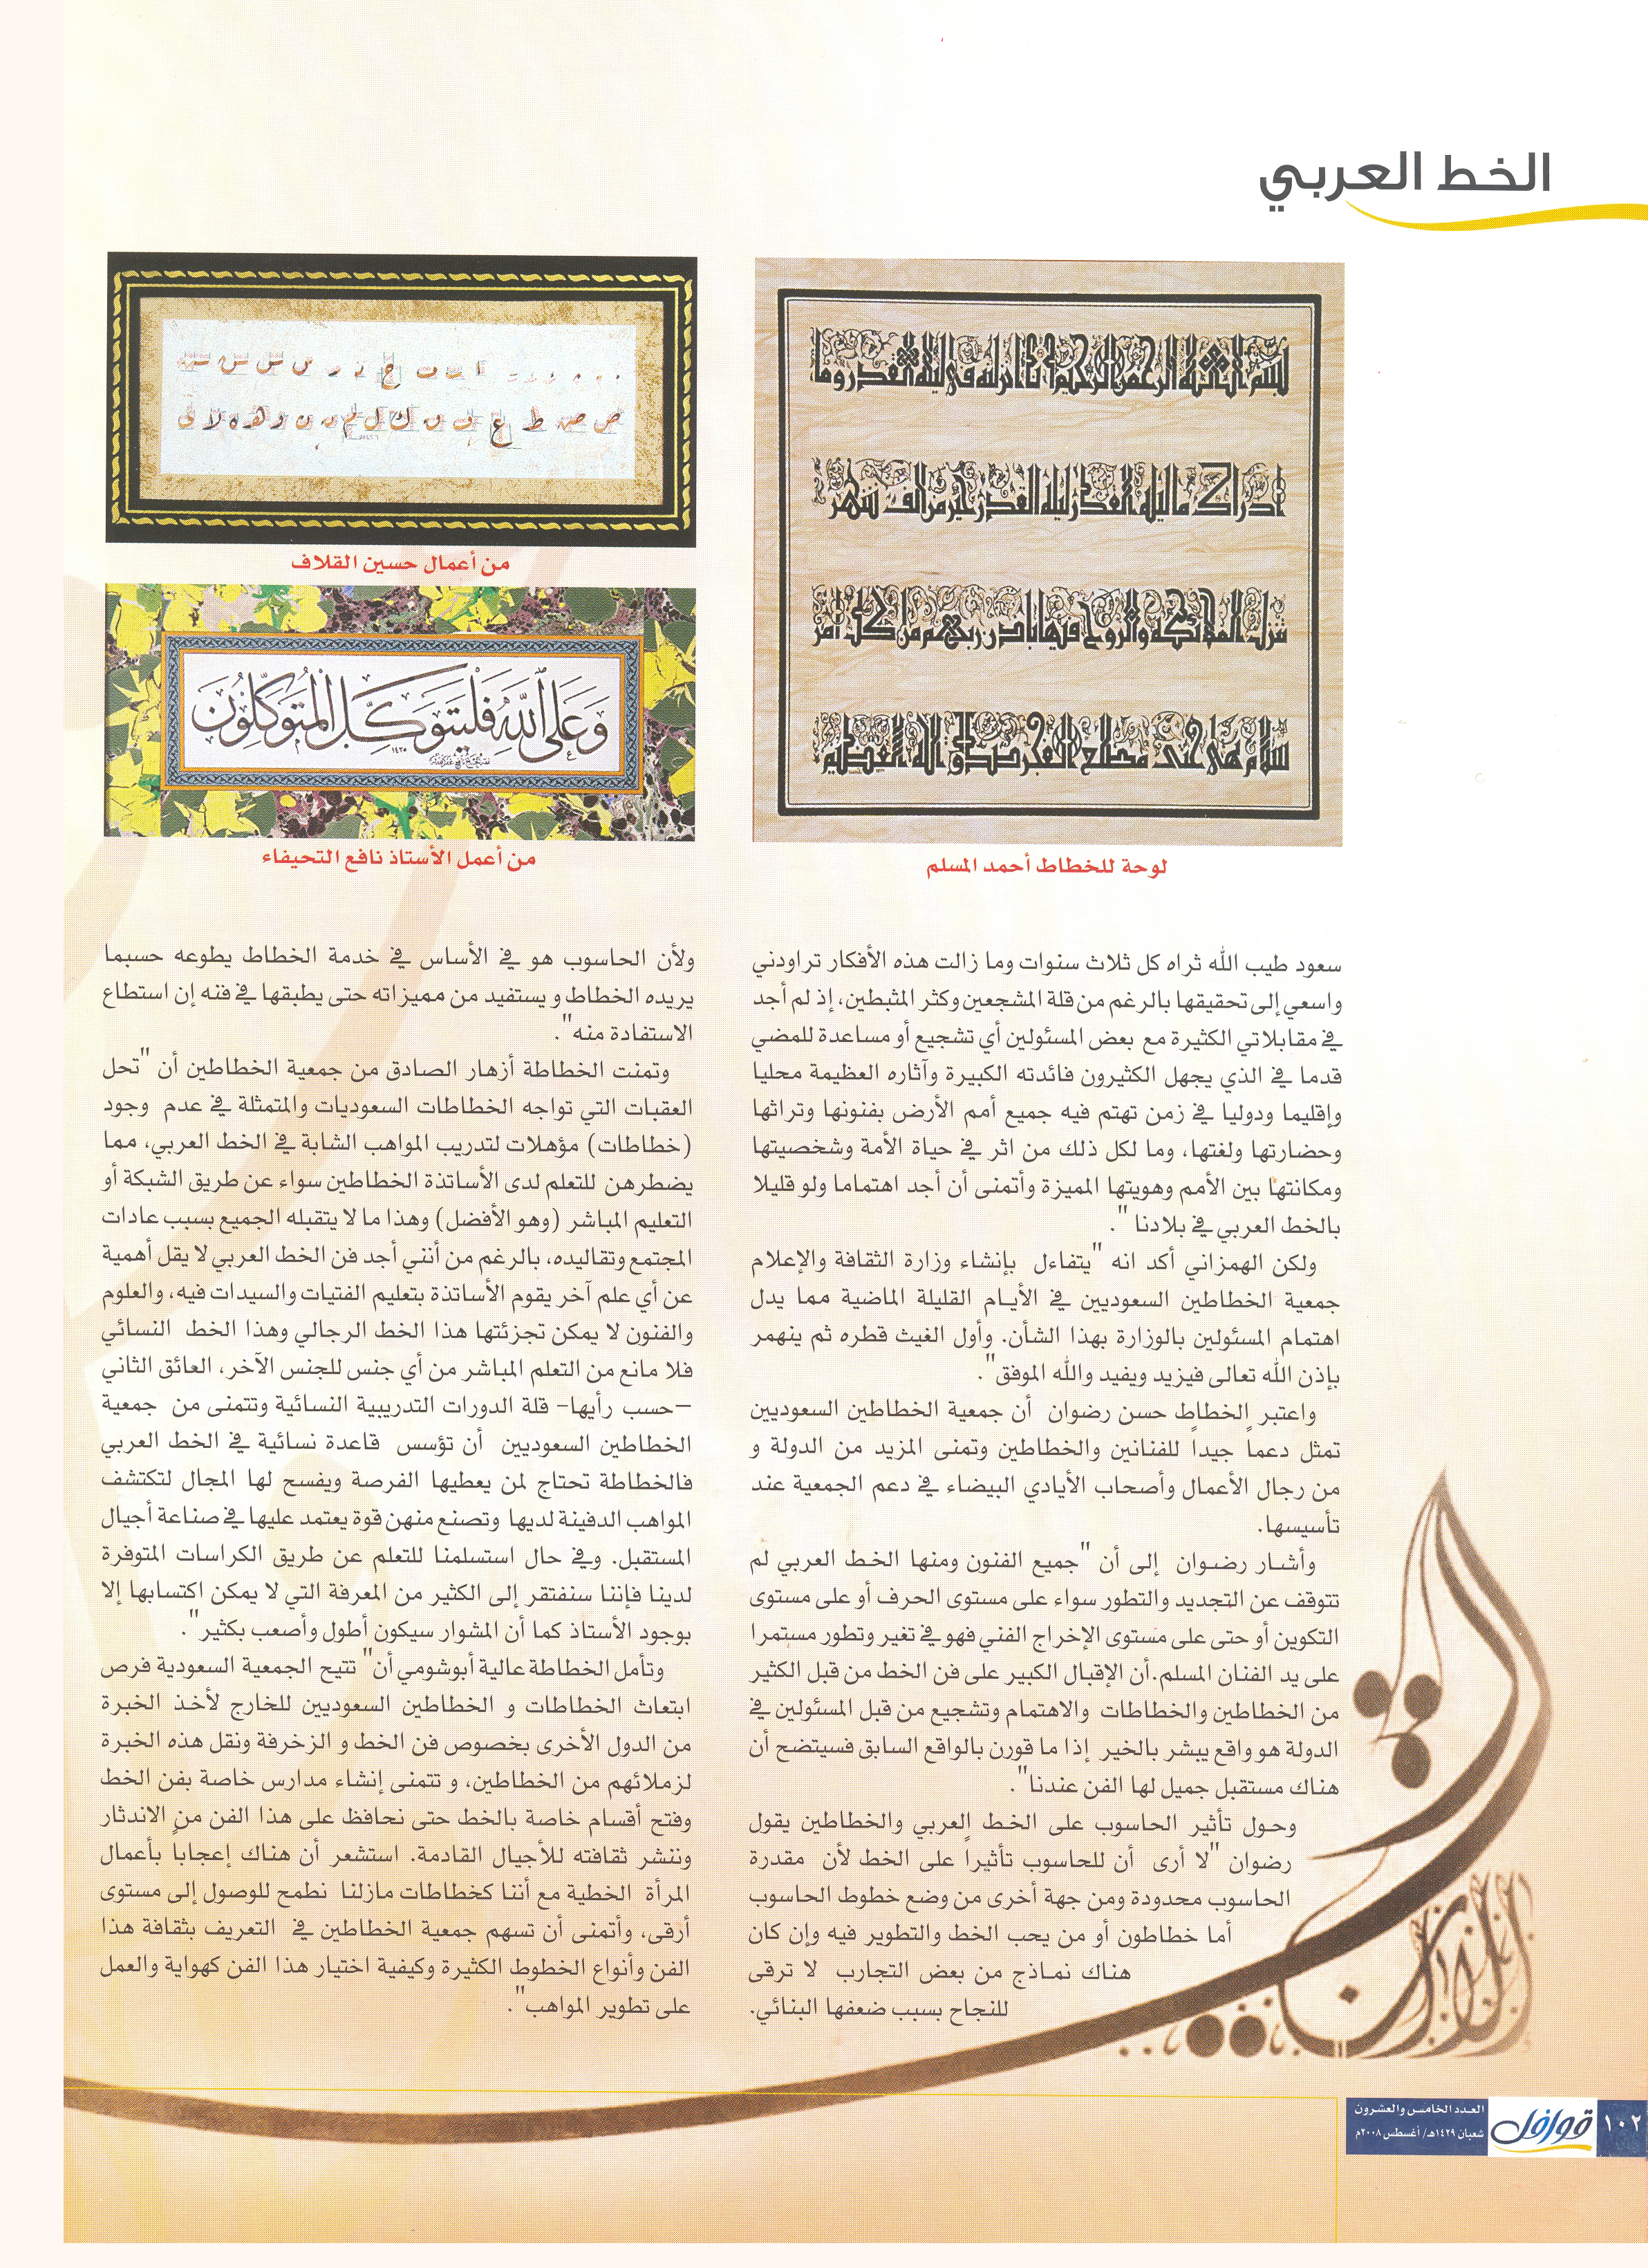 الخط العربي
بسم الله الرحمن الرحيم إنا أنزلناه في ليلة القدر وما
أدراك ما ليلة القدر ليلة القدر خير من ألف شهر
تنزل الملائكة والروح فيها بإذن ربهم من كل أمر
سلام هي حتى مطلع الفجر صدق الله العظيم
لوحة للخطاط أحمد المسلم
ص صد ط ع ف ق ك ل م ن و هـ ه لا ي
من أعمال حسين القلاف
وَعَلَى اللَّهِ فَلْيَتَوَكَّلِ الْمُتَوَكِّلُونَ
١٤٢٥
من أعمل الأستاذ نافع التحيفاء
سعود طيب الله ثراه كل ثلاث سنوات وما زالت هذه الأفكار تراودني
واسعي إلى تحقيقها بالرغم من قلة المشجعين وكثر المثبطين، إذ لم أجد
في مقابلاتي الكثيرة مع بعض المسئولين أي تشجيع أو مساعدة للمضي
قدما في الذي يجهل الكثيرون فائدته الكبيرة وآثاره العظيمة محليا
وإقليما ودوليا في زمن تهتم فيه جميع أمم الأرض بفنونها وتراثها
وحضارتها ولغتها، وما لكل ذلك من اثر في حياة الأمة وشخصيتها
ومكانتها بين الأمم وهويتها المميزة وأتمنى أن أجد اهتماما ولو قليلا
بالخط العربي في بلادنا ".
ولكن الهمزاني أكد انه "يتفاءل بإنشاء وزارة الثقافة والإعلام
جمعية الخطاطين السعوديين في الأيام القليلة الماضية مما يدل
اهتمام المسئولين بالوزارة بهذا الشأن. وأول الغيث قطره ثم ينهمر
بإذن الله تعالى فيزيد ويفيد والله الموفق".
واعتبر الخطاط حسن رضوان أن جمعية الخطاطين السعوديين
تمثل دعماً جيداً للفنانين والخطاطين وتمنى المزيد من الدولة و
من رجال الأعمال وأصحاب الأيادي البيضاء في دعم الجمعية عند
تأسيسها.
وأشار رضوان إلى أن "جميع الفنون ومنها الخط العربي لم
تتوقف عن التجديد والتطور سواء على مستوى الحرف أو على مستوى
التكوين أو حتى على مستوى الإخراج الفني فهو في تغير وتطور مستمرا
على يد الفنان المسلم.أن الإقبال الكبير على فن الخط من قبل الكثير
من الخطاطين والخطاطات والاهتمام وتشجيع من قبل المسئولين في
الدولة هو واقع يبشر بالخير إذا ما قورن بالواقع السابق فسيتضح أن
هناك مستقبل جميل لها الفن عندنا".
وحول تأثير الحاسوب على الخط العربي والخطاطين يقول
رضوان "لا أرى أن للحاسوب تأثيراً على الخط لأن مقدرة
الحاسوب محدودة ومن جهة أخرى من وضع خطوط الحاسوب
أما خطاطون أو من يحب الخط والتطوير فيه وإن كان
هناك نماذج من بعض التجارب لا ترقى
للنجاح بسبب ضعفها البنائي.
ولأن الحاسوب هو في الأساس في خدمة الخطاط يطوعه حسبما
يريده الخطاط و يستفيد من مميزاته حتى يطبقها في فنه إن استطاع
الاستفادة منه".
وتمنت الخطاطة أزهار الصادق من جمعية الخطاطين أن "تحل
العقبات التي تواجه الخطاطات السعوديات والمتمثلة في عدم وجود
(خطاطات) مؤهلات لتدريب المواهب الشابة في الخط العربي، مما
يضطرهن للتعلم لدى الأساتذة الخطاطين سواء عن طريق الشبكة أو
التعليم المباشر (وهو الأفضل) وهذا ما لا يتقبله الجميع بسبب عادات
المجتمع وتقاليده، بالرغم من أنني أجد فن الخط العربي لا يقل أهمية
عن أي علم آخر يقوم الأساتذة بتعليم الفتيات والسيدات فيه، والعلوم
والفنون لا يمكن تجزئتها هذا الخط الرجالي وهذا الخط النسائي
فلا مانع من التعلم المباشر من أي جنس للجنس الآخر، العائق الثاني
-حسب رأيها- قلة الدورات التدريبية النسائية وتتمنى من جمعية
الخطاطين السعوديين أن تؤسس قاعدة نسائية في الخط العربي
فالخطاطة تحتاج لمن يعطيها الفرصة ويفسح لها المجال لتكتشف
المواهب الدفينة لديها وتصنع منهن قوة يعتمد عليها في صناعة أجيال
المستقبل. وفي حال استسلمنا للتعلم عن طريق الكراسات المتوفرة
لدينا فإننا سنفتقر إلى الكثير من المعرفة التي لا يمكن اكتسابها إلا
بوجود الأستاذ كما أن المشوار سيكون أطول وأصعب بكثير".
وتأمل الخطاطة عالية أبوشومي أن" تتيح الجمعية السعودية فرص
ابتعاث الخطاطات و الخطاطين السعوديين للخارج لأخذ الخبرة
من الدول الأخرى بخصوص فن الخط و الزخرفة ونقل هذه الخبرة
لزملائهم من الخطاطين، و تتمنى إنشاء مدارس خاصة بفن الخط
وفتح أقسام خاصة بالخط حتى نحافظ على هذا الفن من الاندثار
وننشر ثقافته للأجيال القادمة. استشعر أن هناك إعجاباً بأعمال
المرأة الخطية مع أننا كخطاطات مازلنا نطمح للوصول إلى مستوى
أرقى، وأتمنى أن تسهم جمعية الخطاطين في التعريف بثقافة هذا
الفن وأنواع الخطوط الكثيرة وكيفية اختيار هذا الفن كهواية والعمل
على تطوير المواهب".
١٠٢
قوافل
العدد الخامس والعشرون
شعبان ١٤٢٩هـ/ أغسطس ٢٠٠٨م